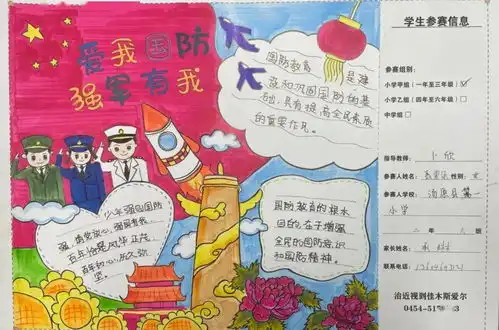 爱我国防
强军有我
国防教育是建
设和巩固国防的基
础,具有提高全民素质
的重要作用。
少年强则国防
强,请党放心,强国有我
百年恰是风华正茂
国防教育的根本
目的在于增强
全民的国防意识
和国防精神。
学生参赛信息
参赛组别:
小学甲组(一年至三年级)☑
小学乙组(四年至六年级)□
中学组□
指导教师:卜欣
参赛人姓名: 性别:女
参赛人学校:汤原县第一
小学
二年 班
家长姓名:
联系电话:
治近视到佳木斯爱尔
0454-517